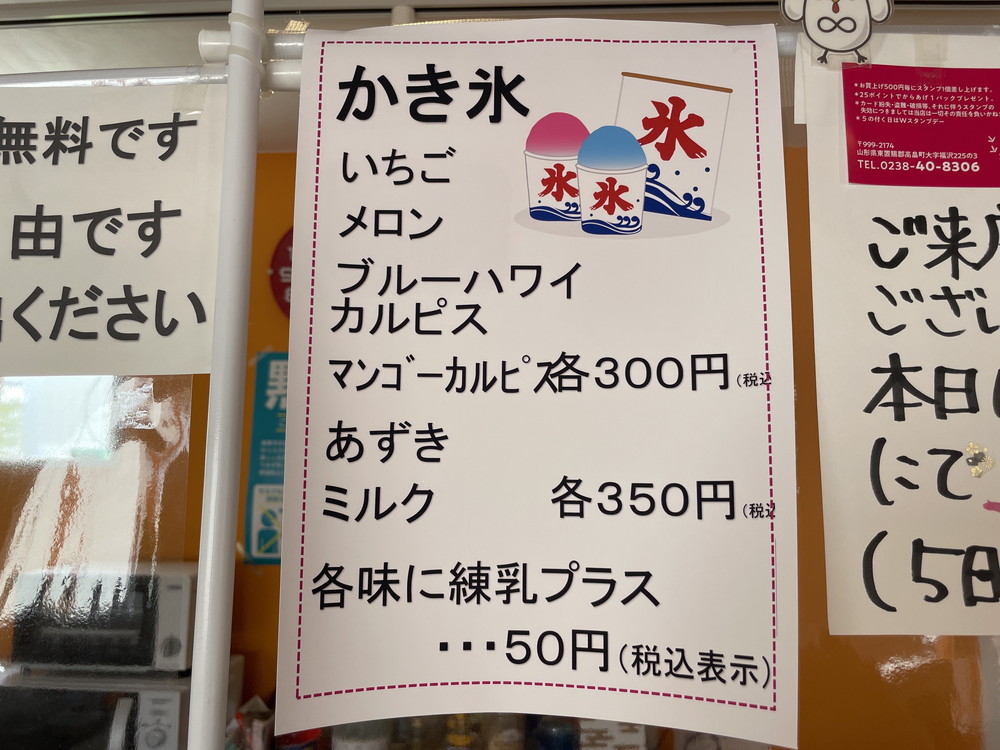 無料です
由です
ください
かき氷
いちご
メロン
ブルーハワイ
カルピス
マンゴーカルピス各300円(税込
あずき
ミルク 各350円(税込
各味に練乳プラス
・・・50円(税込表示)
氷
氷
氷
*お買上げ500円毎にスタンプ1個差し上げます。
*25ポイントでからあげ1パックプレゼント。
*カード紛失・盗難・破損等、それに伴うスタンプの
失効につきましては当店は一切その責任を負いかね
*5の付く日はWスタンプデー
〒999-2174
山形県東置賜郡高畠町大字福沢225の3
TEL.0238-40-8306
ご来
ござい
本日
にて
(5日